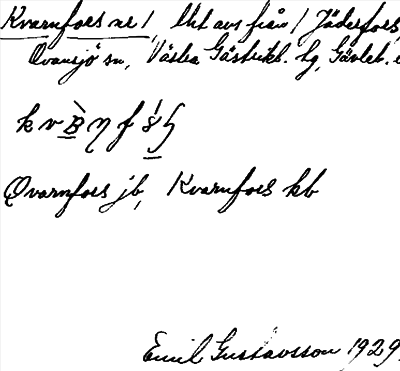 Kvarnfors nr 1, lht avs från 1 Jäderfors,
Ovansjö sn, Västra Gästrikl. tg, Gävleb.
Qvarnfors jb, Kvarnfors kb
Emil Gustavsson 1929